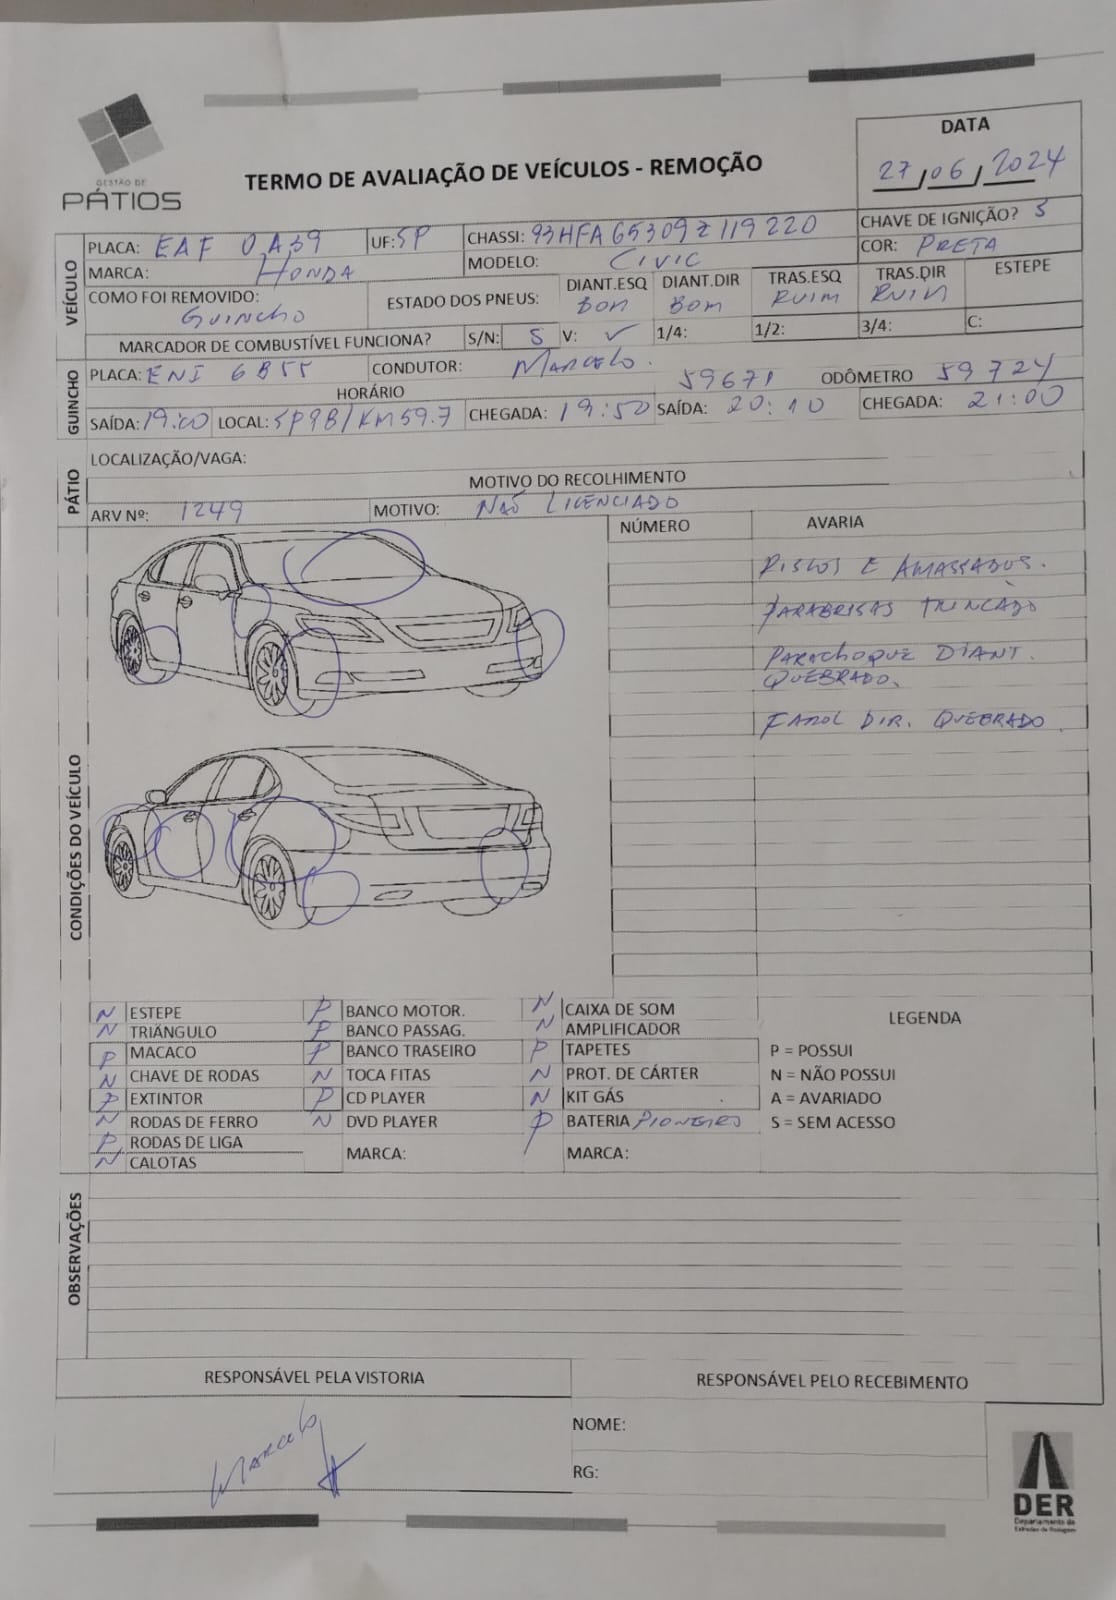 GESTÃO DE
PÁTIOS
TERMO DE AVALIAÇÃO DE VEÍCULOS - REMOÇÃO
DATA
27/06/2024
VEÍCULO
PLACA: EAF 0A39 UF: SP CHASSI: 93HFA65309Z119220 CHAVE DE IGNIÇÃO? S
MARCA: HONDA MODELO: CIVIC COR: PRETA
COMO FOI REMOVIDO: GUINCHO ESTADO DOS PNEUS: DIANT.ESQ BOM DIANT.DIR BOM TRAS.ESQ RUIM TRAS.DIR RUIM ESTEPE
MARCADOR DE COMBUSTÍVEL FUNCIONA? S/N: S V: ✓ 1/4: 1/2: 3/4: C:
GUINCHO
PLACA: ENI 6B55 CONDUTOR: MARCELO.
HORÁRIO 59671 ODÔMETRO 59724
SAÍDA: 19:00 LOCAL: SP98/KM59.7 CHEGADA: 19:50 SAÍDA: 20:10 CHEGADA: 21:00
PÁTIO
LOCALIZAÇÃO/VAGA:
MOTIVO DO RECOLHIMENTO
ARV Nº: 1249 MOTIVO: NÃO LICENCIADO
CONDIÇÕES DO VEÍCULO
NÚMERO AVARIA
RISCOS E AMASSADOS.
PARABRISAS TRINCADO
PARACHOQUE DIANT.
QUEBRADO.
FAROL DIR. QUEBRADO
N ESTEPE P BANCO MOTOR. N CAIXA DE SOM LEGENDA
N TRIÂNGULO P BANCO PASSAG. N AMPLIFICADOR
P MACACO P BANCO TRASEIRO P TAPETES P = POSSUI
N CHAVE DE RODAS N TOCA FITAS N PROT. DE CÁRTER N = NÃO POSSUI
P EXTINTOR P CD PLAYER N KIT GÁS A = AVARIADO
N RODAS DE FERRO N DVD PLAYER P BATERIA PIONEIRO S = SEM ACESSO
P RODAS DE LIGA MARCA: MARCA:
N CALOTAS
OBSERVAÇÕES
RESPONSÁVEL PELA VISTORIA RESPONSÁVEL PELO RECEBIMENTO
Marcelo
NOME:
RG:
DER
Departamento de
Estradas de Rodagem